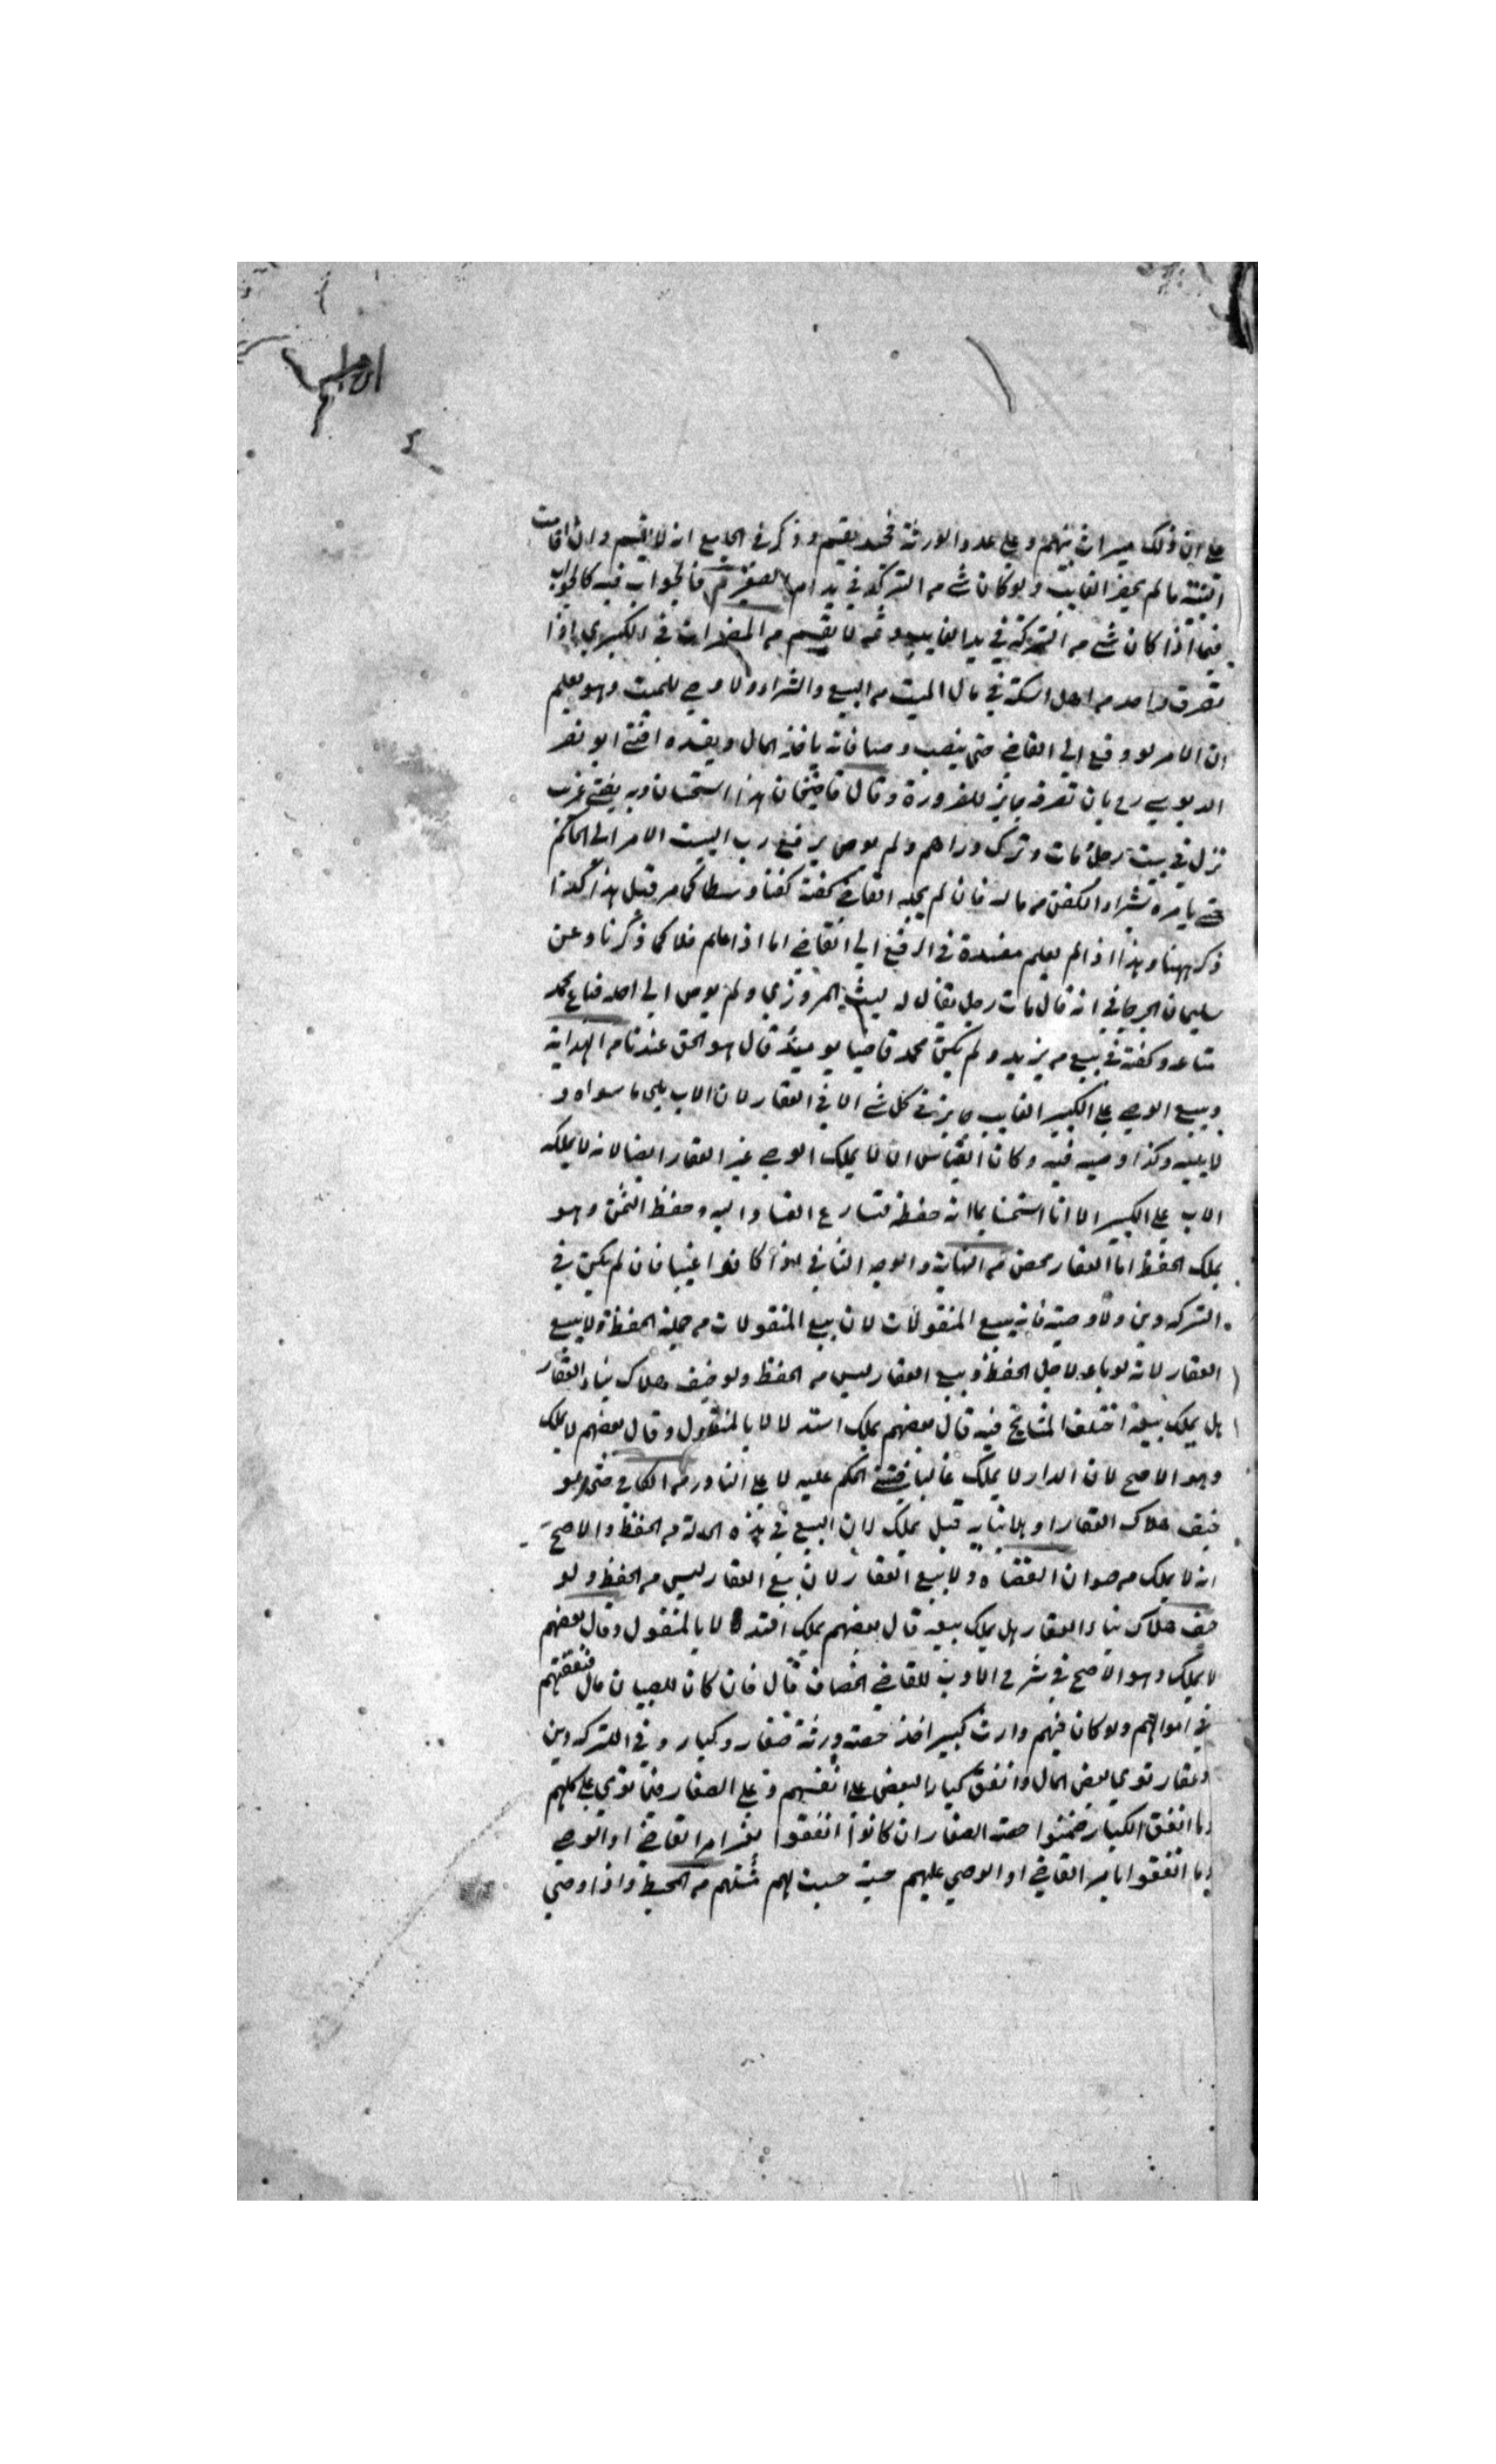 ابراهيم
على ان ذلك ميراث بينهم وعلى عدد الورثة فحينئذ يقسم وذكر في الجامع انه لا يقسم وان اقامت
البينة ما لم يحضر الغايب ولو كان شئ من التركة في يد ام الصغير فالجواب فيه كالجواب
فيما اذا كان شئ من التركة في يد الغايب وثمه لا يقسم من المضمرات في الكبرى اذا
تصرف واحد من اهل السكة في مال الميت من البيع والشراء ولا وصي للميت وهو يعلم
ان الامر لو رفع الى القاضي حتى ينصب وصيا فانه ياخذ المال ويفسده افتى ابو نصر
الدبوسي رح بان تصرفه جايز للضرورة وقال قاضيخان هذا استحسان وبه يفتى غريب
نزل في بيت رجل مات وترك دراهم ولم يوص يرفع رب البيت الامر الى الحاكم
حتى يامره بشراء الكفن من ماله فان لم يجد القاضي كفنه كفنا وسطا كما مر قبل هذا كذا
ذكر ههنا وهذا اذا لم يعلم مفسدة في الرفع الى القاضي اما اذا علم فلا كما ذكرنا وعن
سليمان الجرجاني انه قال مات رجل يقال له ليث المروزي ولم يوص الى احد فباع محمد
متاعه وكفنه في بيع من يزيد ولم يكن محمد قاضيا يوميذ قال هو الحق عندنا من الهداية
وبيع الوصي على الكبير الغايب جايز في كل شئ الا في العقار لان الاب يلي ما سواه و
لا يليه وكذا وصيه فيه وكان القياس ان لا يملك الوصي غير العقار ايضا لانه لا يملكه
الاب على الكبير الا انا استحسنا لما انه حفظ لتسارع الفساد اليه وحفظ الثمن وهو
يملك الحفظ اما العقار محصن من النهاية والوجه الثاني لو كانوا غيبا فان لم يكن في
التركه دين ولا وصية فانه يبيع المنقولات لان بيع المنقولات من جملة الحفظ ولا يبيع
العقار لانه لو باعه لاجل الحفظ وبيع العقار ليس من الحفظ ولو خيف هلاك بناء العقار
هل يملك بيعه اختلف المشايخ فيه قال بعضهم يملك استدلالا بالمنقول وقال بعضهم لا يملك
وهو الاصح لان الدار لا يملك غالبا فيبتنى الحكم عليه لا على النادر من الكافي حتى لو
خيف هلاك العقار او بنايه قيل يملك لان البيع في هذه الحالة من الحفظ والاصح
انه لا يملك من صوان القضاه ولا يبيع العقار لان بيع العقار ليس من الحفظ ولو
خيف هلاك بناء العقار هل يملك بيعه قال بعضهم يملك استدلالا بالمنقول وقال بعضهم
لا يملك وهو الاصح في شرح الادب للقاضي الخصاف قال فان كان للصبيان مال فنفقتهم
في اموالهم ولو كان فيهم وارث كبير اخذ حصته ورثة صغار وكبار وفي التركه دين
وعقار توي بعض المال وانفق كبار البعض على انفسهم وعلى الصغار فما توي على كلهم
وما انفق الكبار ضمنوا حصه الصغار ان كانوا انفقوا بغير امر القاضي او الوصي
وما انفقوا بامر القاضي او الوصي عليهم حسبت لهم مثلهم من المحيط واذا اوصى